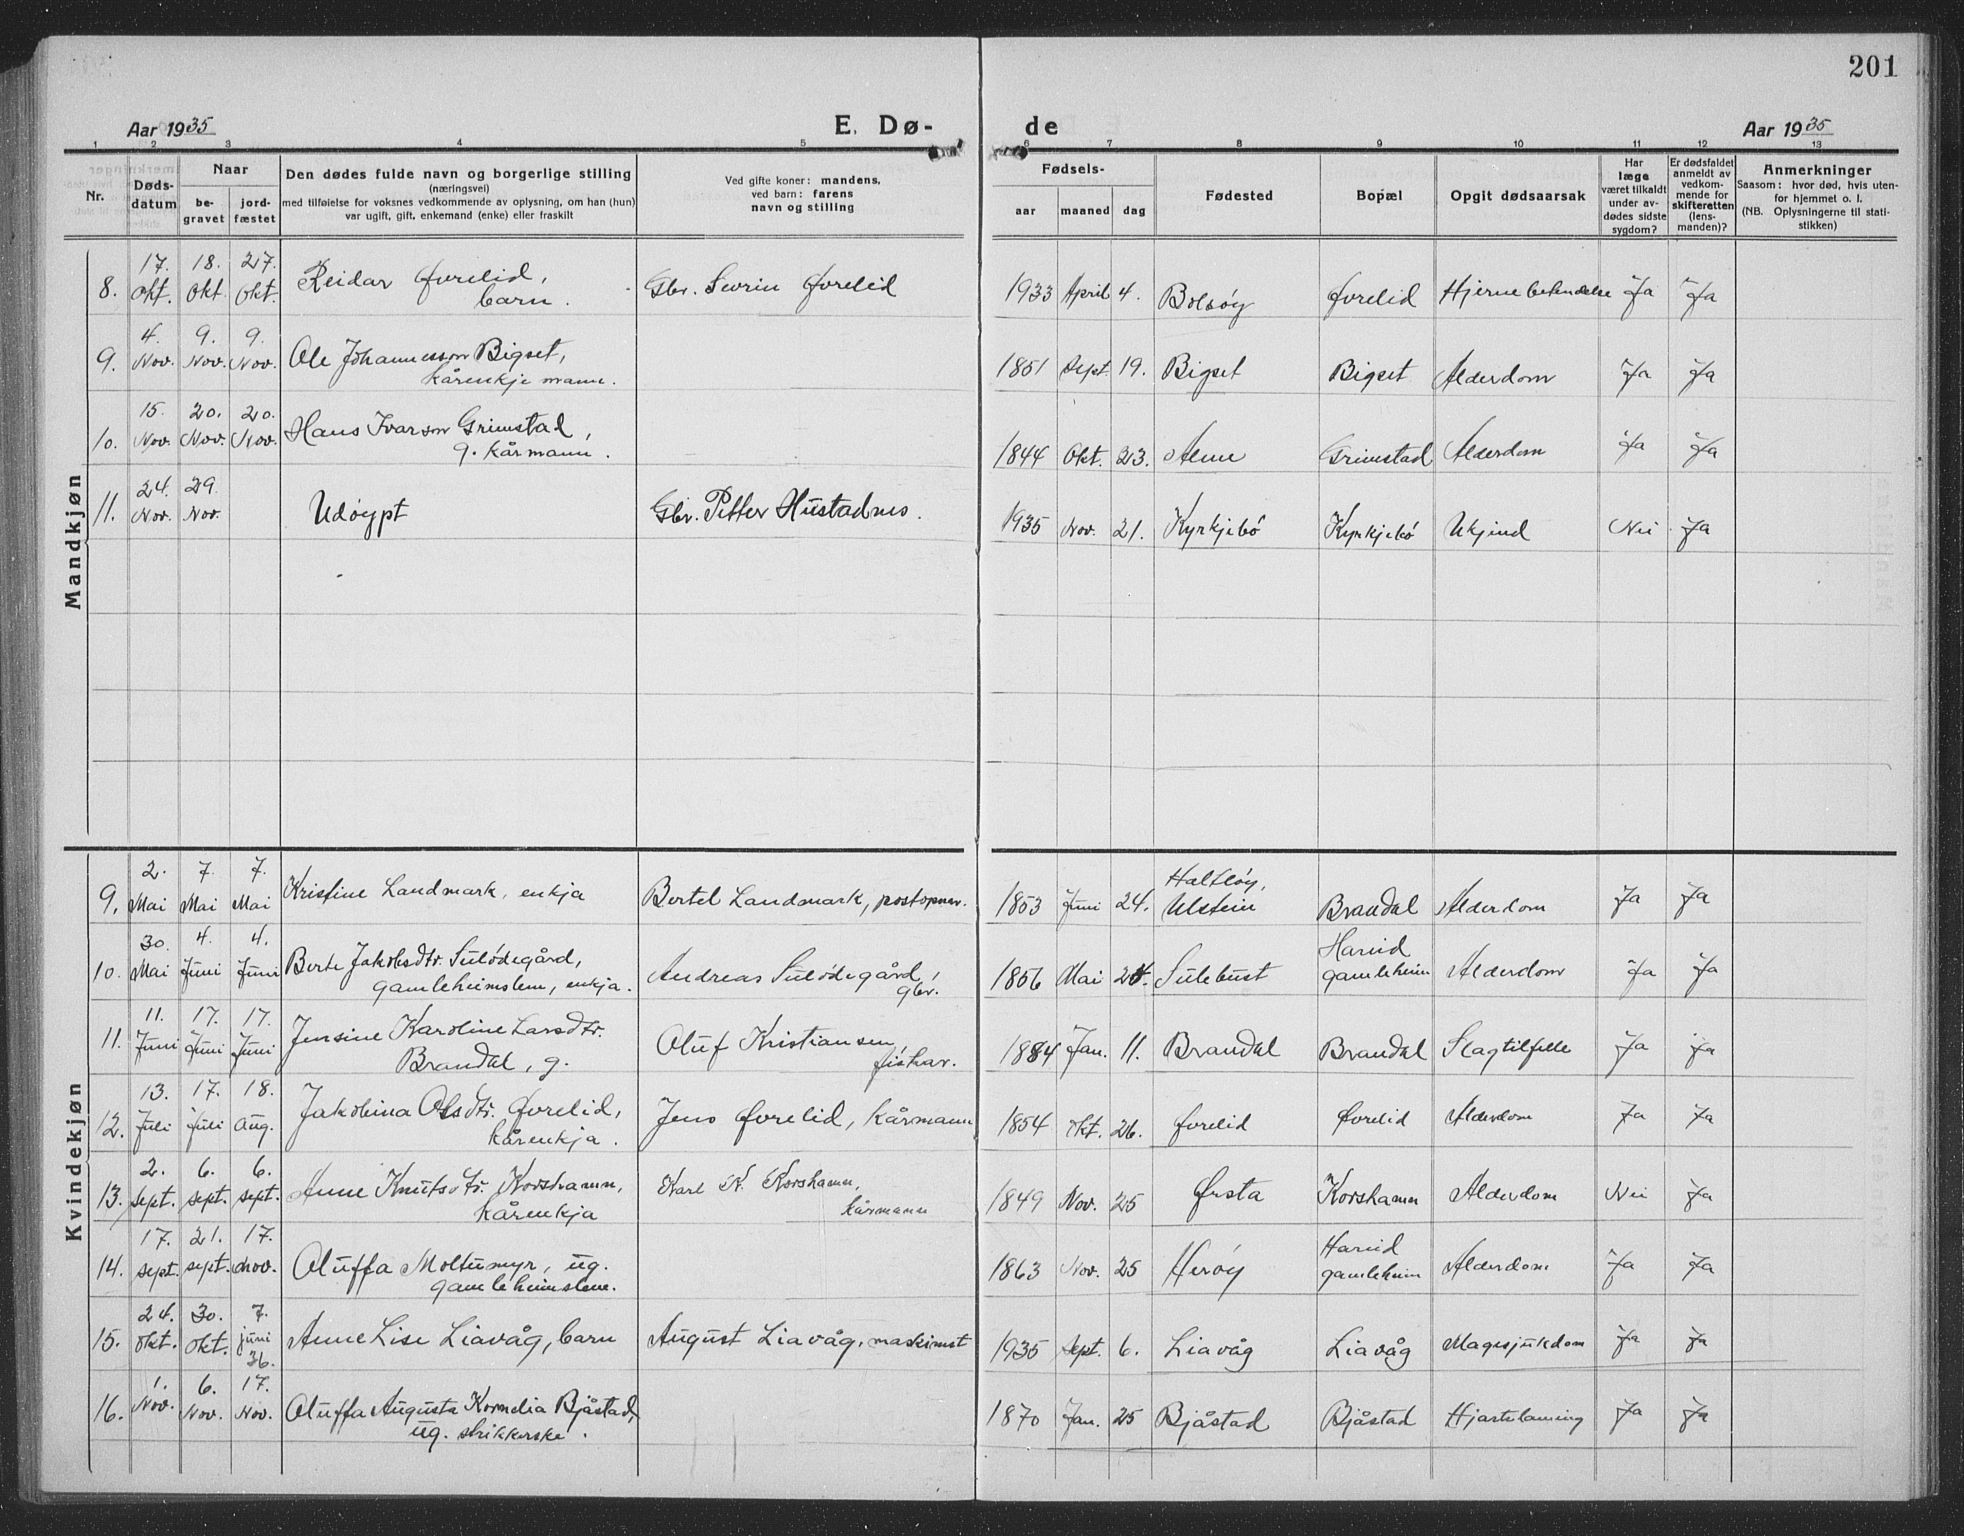 201
Aar 1935
E. Dø-
de
Aar 1935
1 2 3 4 5 6 7 8 9 10 11 12 13
Nr.
Døds-
datum
Naar
be-
gravet
jord-
fæstet
Den dødes fulde navn og borgerlige stilling
(næringsvei)
med tilføielse for voksnes vedkommende av oplysning, om han (hun)
var ugift, gift, enkemand (enke) eller fraskilt
Ved gifte koner: mandens,
ved barn: farens
navn og stilling
Fødsels-
aar maaned dag
Fødested
Bopæl
Opgit dødsaarsak
Har
læge
været tilkaldt
under av-
dødes sidste
sygdom?
Er dødsfaldet
anmeldt av
vedkom-
mende for
skifteretten
(lens-
manden)?
Anmerkninger
Saasom: hvor død, hvis uten-
for hjemmet o. l.
(NB. Oplysningerne til stati-
stikken)
Mandkjøn
8. 17. Okt. 18. Okt. 27. Okt. Reidar Øvrelid, barn. Gbr. Sevrin Øvrelid 1933 April 4. Bolsøy Øvrelid Hjernebetendelse Ja Ja
9. 4. Nov. 9. Nov. 9. Nov. Ole Johannesson Bigset, kårenkjemann. 1851 Sept. 19. Bigset Bigset Alderdom Ja Ja
10. 15. Nov. 20. Nov. 20. Nov. Hans Ivarson Grimstad, g. kårmann. 1844 Okt. 23. Grimstad Alderdom Ja Ja
11. 24. Nov. 29. Nov. Udøypt Gbr. Petter Hustadnes. 1935 Nov. 21. Kyrkjebø Kyrkjebø Ukjend Nei Ja
Kvindekjøn
9. 2. Mai 7. Mai 7. Mai Kristine Landmark, enkja Bertel Landmark, postopnar. 1853 Juni 24. Ulstein Brandal Alderdom Ja Ja
10. 30. Mai 4. Juni 4. Juni Berte Jakobsdtr. Sulødegård, gamleheimslem, enkja. Andreas Sulødegård, gbr. 1856 Mai Sulebust Hareid gamleheim Alderdom Ja Ja
11. 11. Juni 17. Juni 17. Juni Jensine Karoline Larsdtr. Brandal, g. Oluf Kristiansen, fiskar. 1884 Jan. 11. Brandal Brandal Slagtilfelle Ja Ja
12. 13. Juli 17. Juli 18. Aug. Jakobina Olsdtr. Øvrelid, kårenkja. Jens Øvrelid, kårmann 1854 Okt. 26. Øvrelid Øvrelid Alderdom Ja Ja
13. 2. Sept. 6. Sept. 6. Sept. Anne Knutsdtr. Korshamn, kårenkja Karl K. Korshamn, kårmann 1849 Nov. 25 Ørsta Korshamn Alderdom Nei Ja
14. 17. Sept. 21. Sept. 17. Nov. Oluffa Moltumyr, ug. gamleheimslem. 1863 Nov. 25 Herøy Hareid gamleheim Alderdom Ja Ja
15. 24. Okt. 30. Okt. 7. juni 36. Anne Lise Liavåg, barn August Liavåg, maskinist 1935 Sept. 6. Liavåg Liavåg Magesjukdom Ja Ja
16. 1. Nov. 6. Nov. 17. Nov. Oluffa Augusta Kornelia Bjåstad, ug. strikkerske. 1870 Jan. 25 Bjåstad Bjåstad Hjartelaming Ja Ja